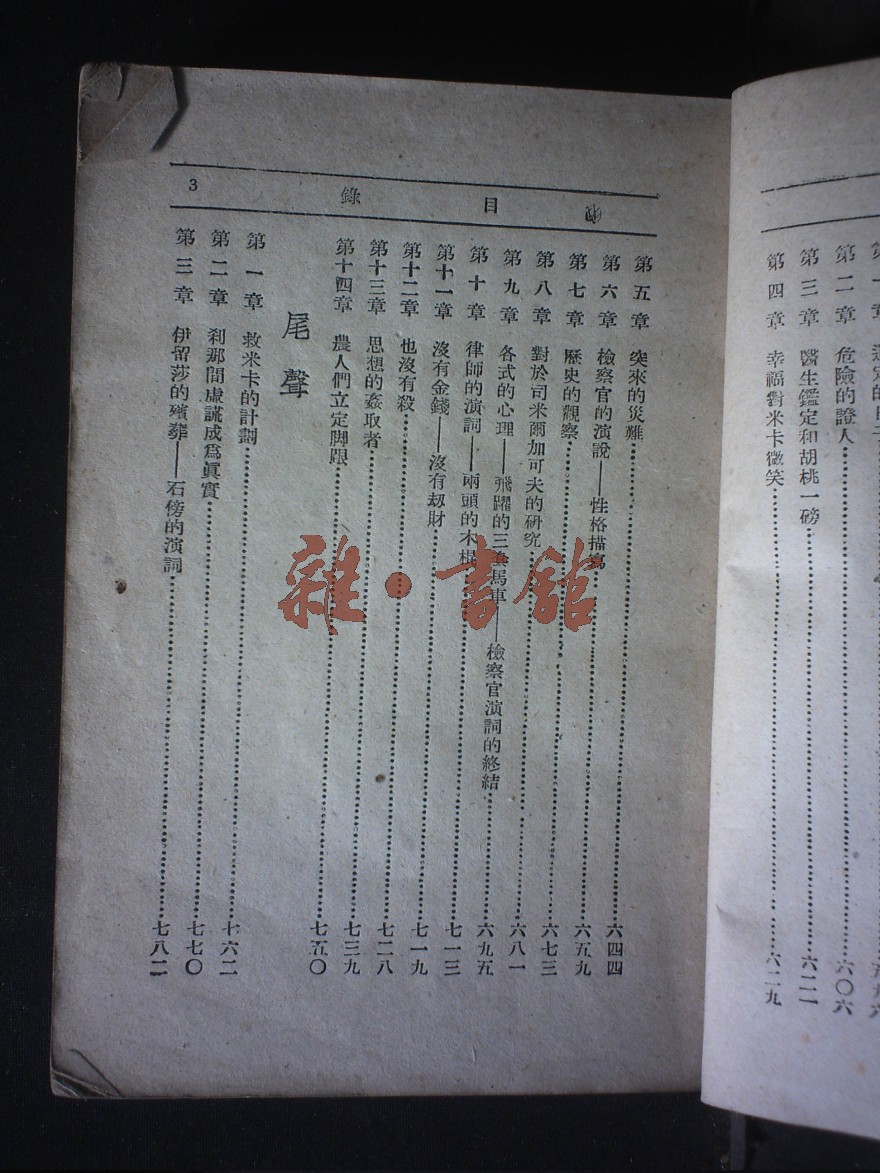 第二章 危險的證人 六〇六
第三章 醫生鑑定和胡桃一磅 六二一
第四章 幸福對米卡微笑 六二九
目錄
3
第五章 突來的災難 六四四
第六章 檢察官的演說——性格描寫 六五九
第七章 歷史的觀察 六七三
第八章 對於司米爾加可夫的研究 六八一
第九章 各式的心理——飛躍的三套馬車——檢察官演詞的終結 六九五
第十章 律師的演詞——兩頭的木棍 七一三
第十一章 沒有金錢——沒有刼財 七一九
第十二章 也沒有殺 七二八
第十三章 思想的姦取者 七三九
第十四章 農人們立定脚跟 七五〇
尾聲
第一章 救米卡的計劃 七六二
第二章 刹那間虛謊成爲眞實 七七〇
第三章 伊留莎的殯葬——石傍的演詞 七八二
雜·書館